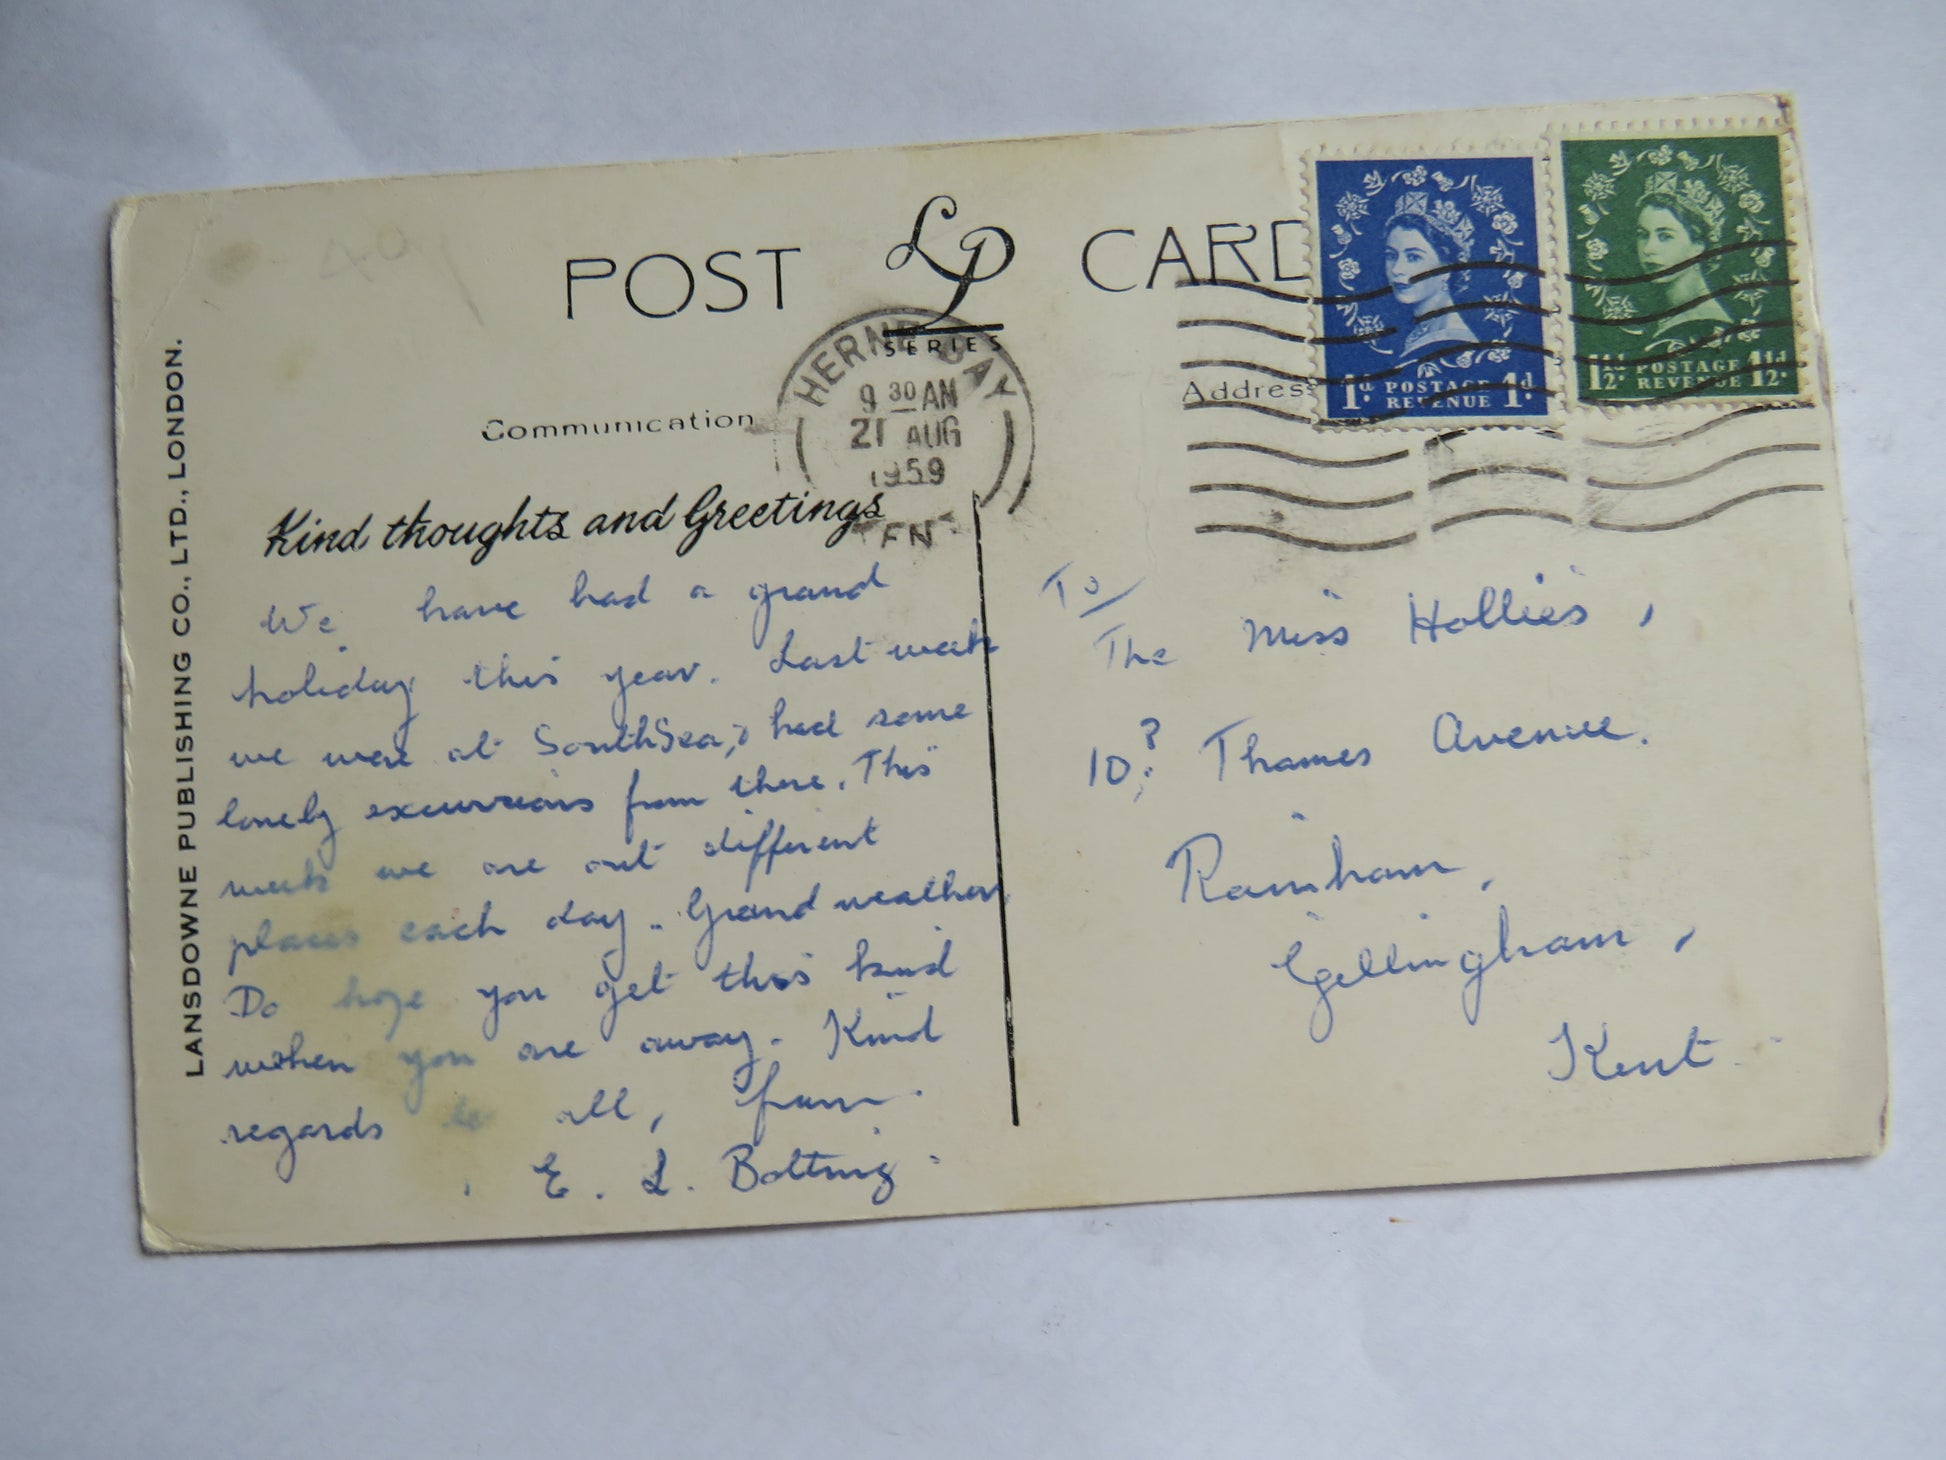 POST LP CARD
SERIES
HERNE BAY
9 30 AM
21 AUG
1959
Communication
Address
1d POSTAGE 1d
REVENUE
1½d POSTAGE 1½d
REVENUE
LANSDOWNE PUBLISHING CO., LTD., LONDON.
Kind thoughts and Greetings
We have had a grand
holiday this year. Last week
we were at SouthSea, & had some
lovely excursions from there. This
week we are out different
places each day. Grand weather,
Do hope you get this kind
when you are away. Kind
regards to all, from
E. L. Bolting.
To
The Miss Hollies,
10? Thames Avenue.
Rainham,
Gillingham,
Kent.